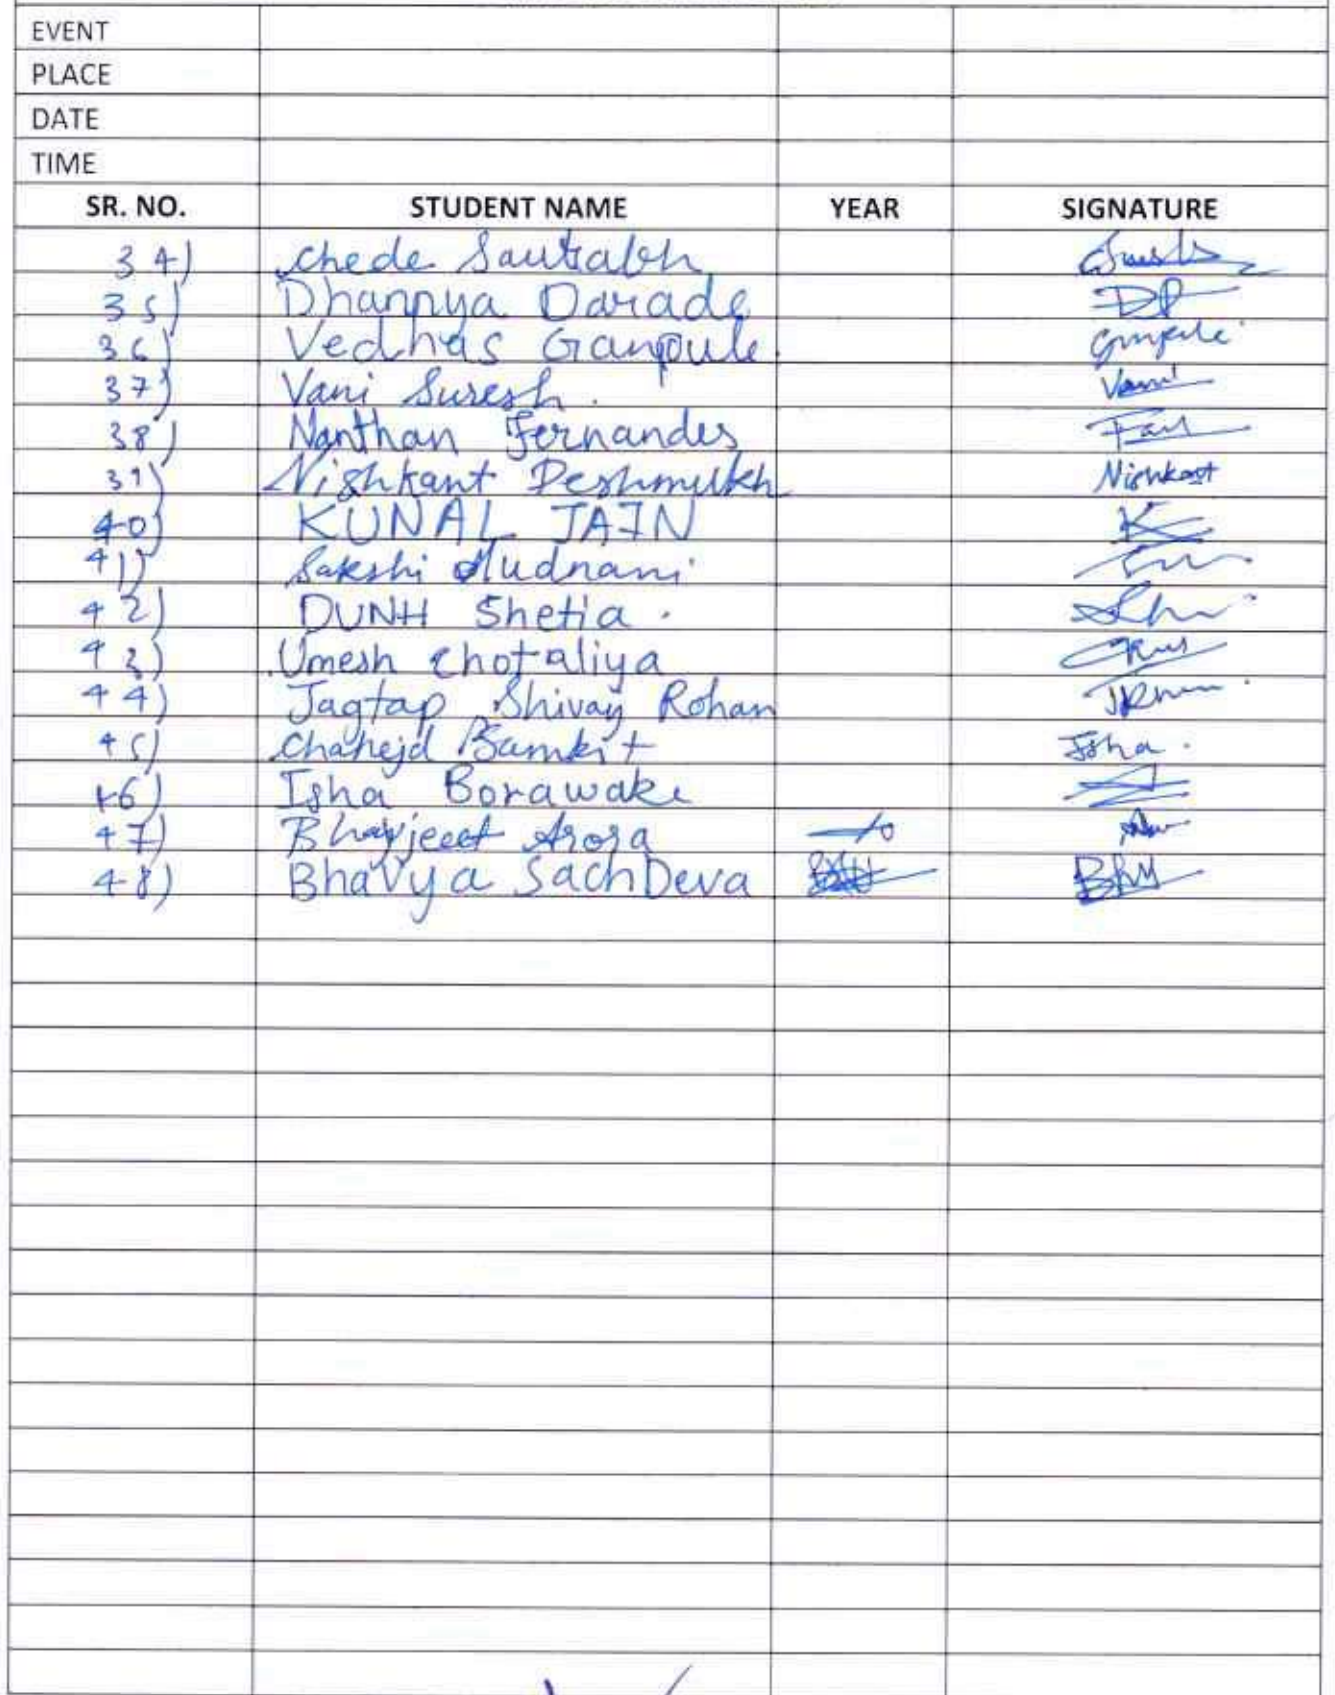 EVENT
PLACE
DATE
TIME
SR. NO. STUDENT NAME YEAR SIGNATURE
34) Chede Saurabh
35) Dhannya Darade
36) Vedhas Ganpule Ganpule
37) Vani Suresh. Vani
38) Nanthan Fernandes
39) Nishkant Deshmukh Nishkant
40) KUNAL JAIN K
41) Sakshi Mudnani
42) DUNH Shetia.
43) Umesh Chotaliya
44) Jagtap Shivay Rohan
45) Chahejd Bamkit Isha.
46) Isha Borawake
47) Bhavjeet Arora
48) Bhavya SachDeva Bhy